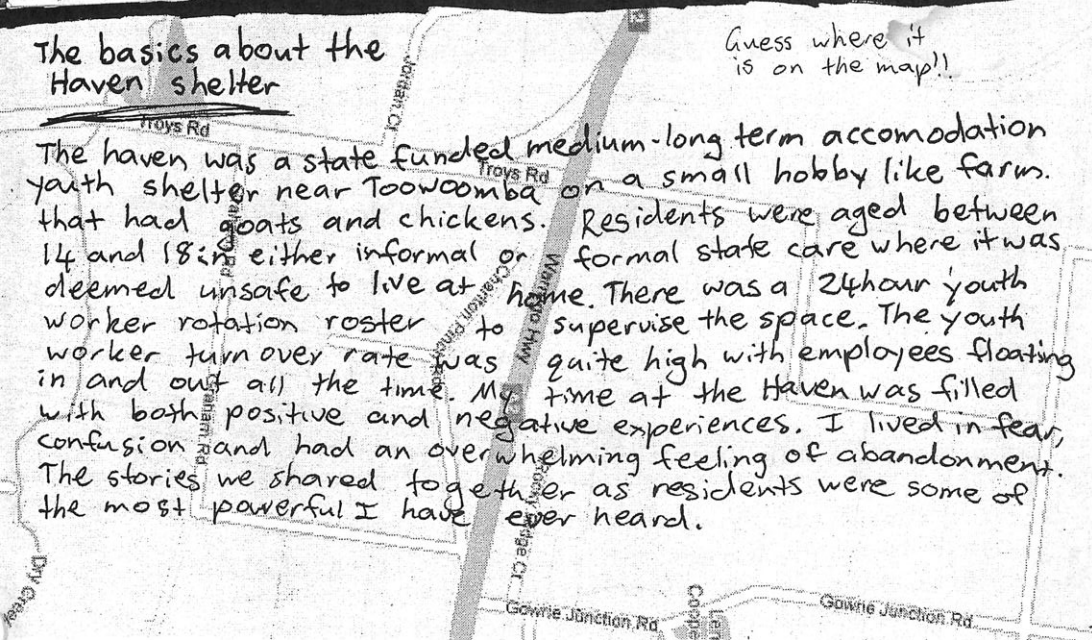 The basics about the
Haven shelter
Guess where it
is on the map!!
The haven was a state funded medium-long term accomodation
youth shelter near Toowoomba on a small hobby like farm.
that had goats and chickens. Residents were aged between
14 and 18 in either informal or formal state care where it was
deemed unsafe to live at home. There was a 24hour youth
worker rotation roster to supervise the space. The youth
worker turn over rate was quite high with employees floating
in and out all the time. My time at the Haven was filled
with both positive and negative experiences. I lived in fear,
confusion and had an overwhelming feeling of abandonment.
The stories we shared together as residents were some of
the most powerful I have ever heard.
Jordan Cr
Troys Rd
Troys Rd
Warrego Hwy
Charlton Rd
Graham Rd
Ridge Ct
Dry Creek
Gowrie Junction Rd
Gowrie Junction Rd